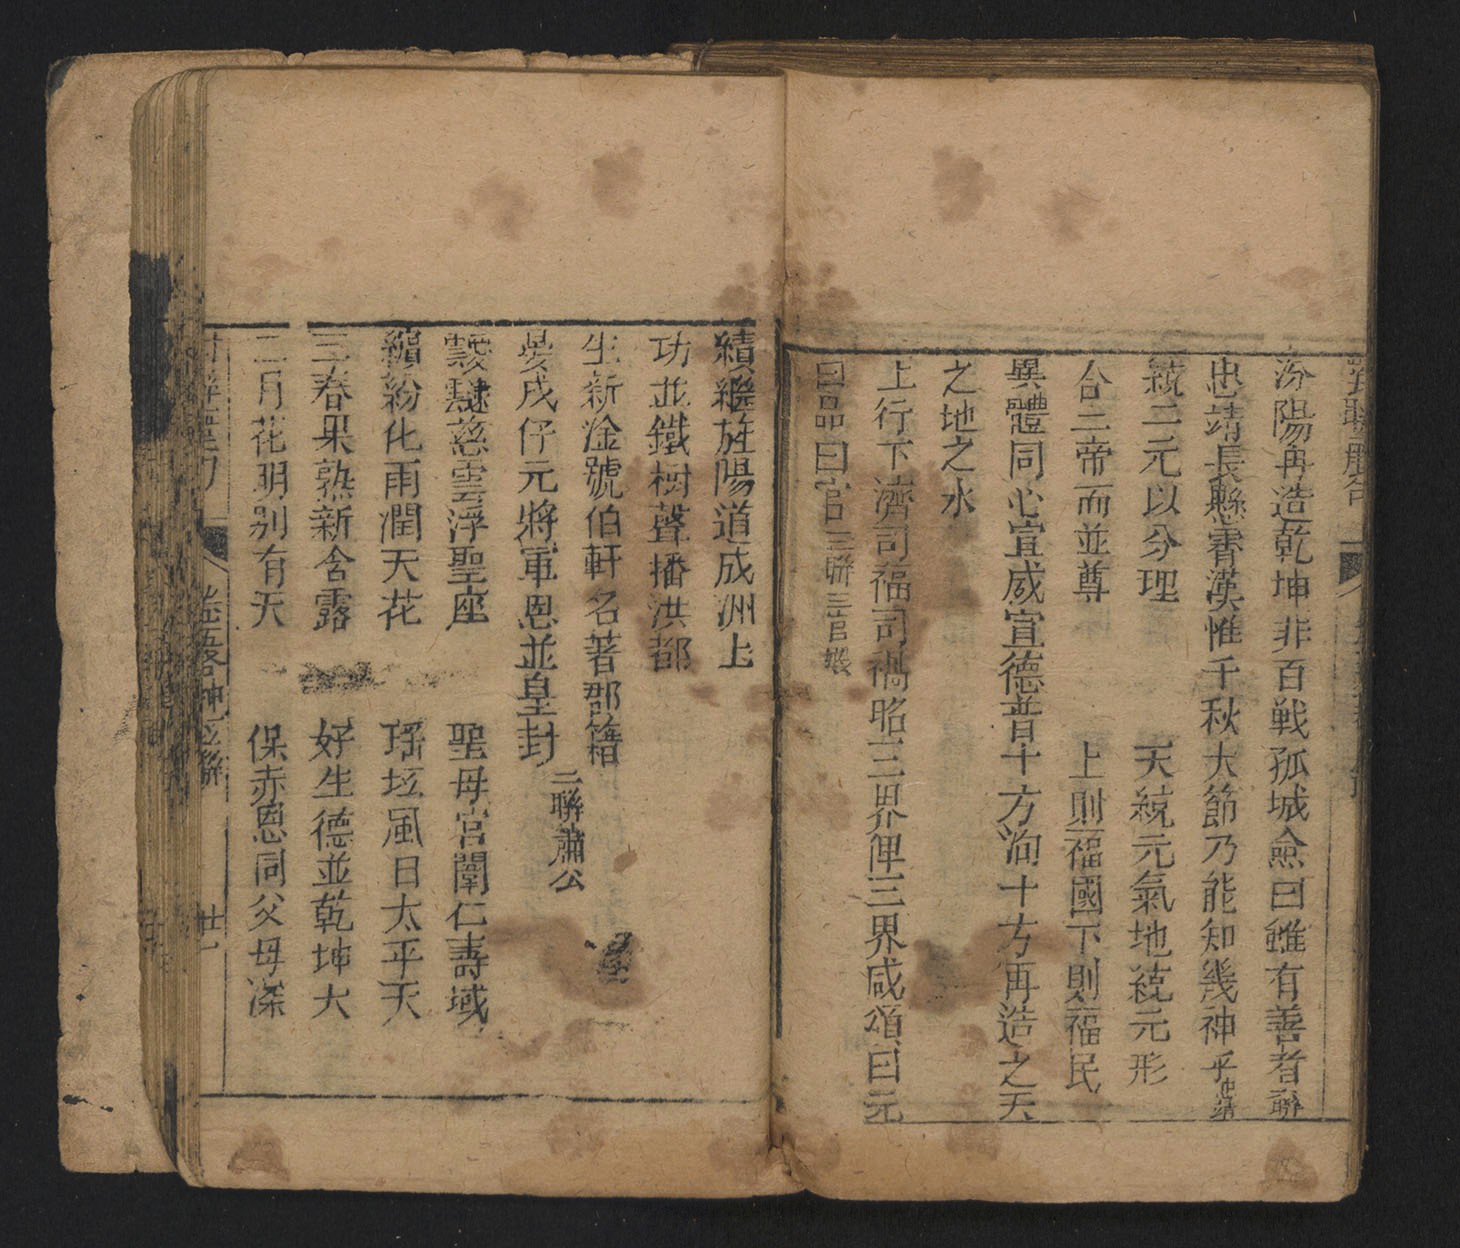 汾陽再造乾坤非百戦孤城僉曰雖有善者聨
忠靖長懸霄漢惟千秋大節乃能知幾神乎忠靖
統二元以分理 天統元氣地統元形
合三帝而並尊 上則福國下則福民
異體同心宣威宣德普十方洵十方再造之天
之地之水
上行下濟司福司禍昭三界俾三界咸頌曰元
曰品曰官三聨三官
績繼旌陽道成洲上
功並鐵樹聲播洪都
生新淦號伯軒名著郡籍
晏戌仔元將軍恩並皇封二聨蕭公
靉靆慈雲浮聖座 聖母宮闈仁壽域
繽紛化雨潤天花 瑶坛風日太平天
三春果熟新含露 好生德並乾坤大
二月花明别有天 保赤恩同父母深
廿一